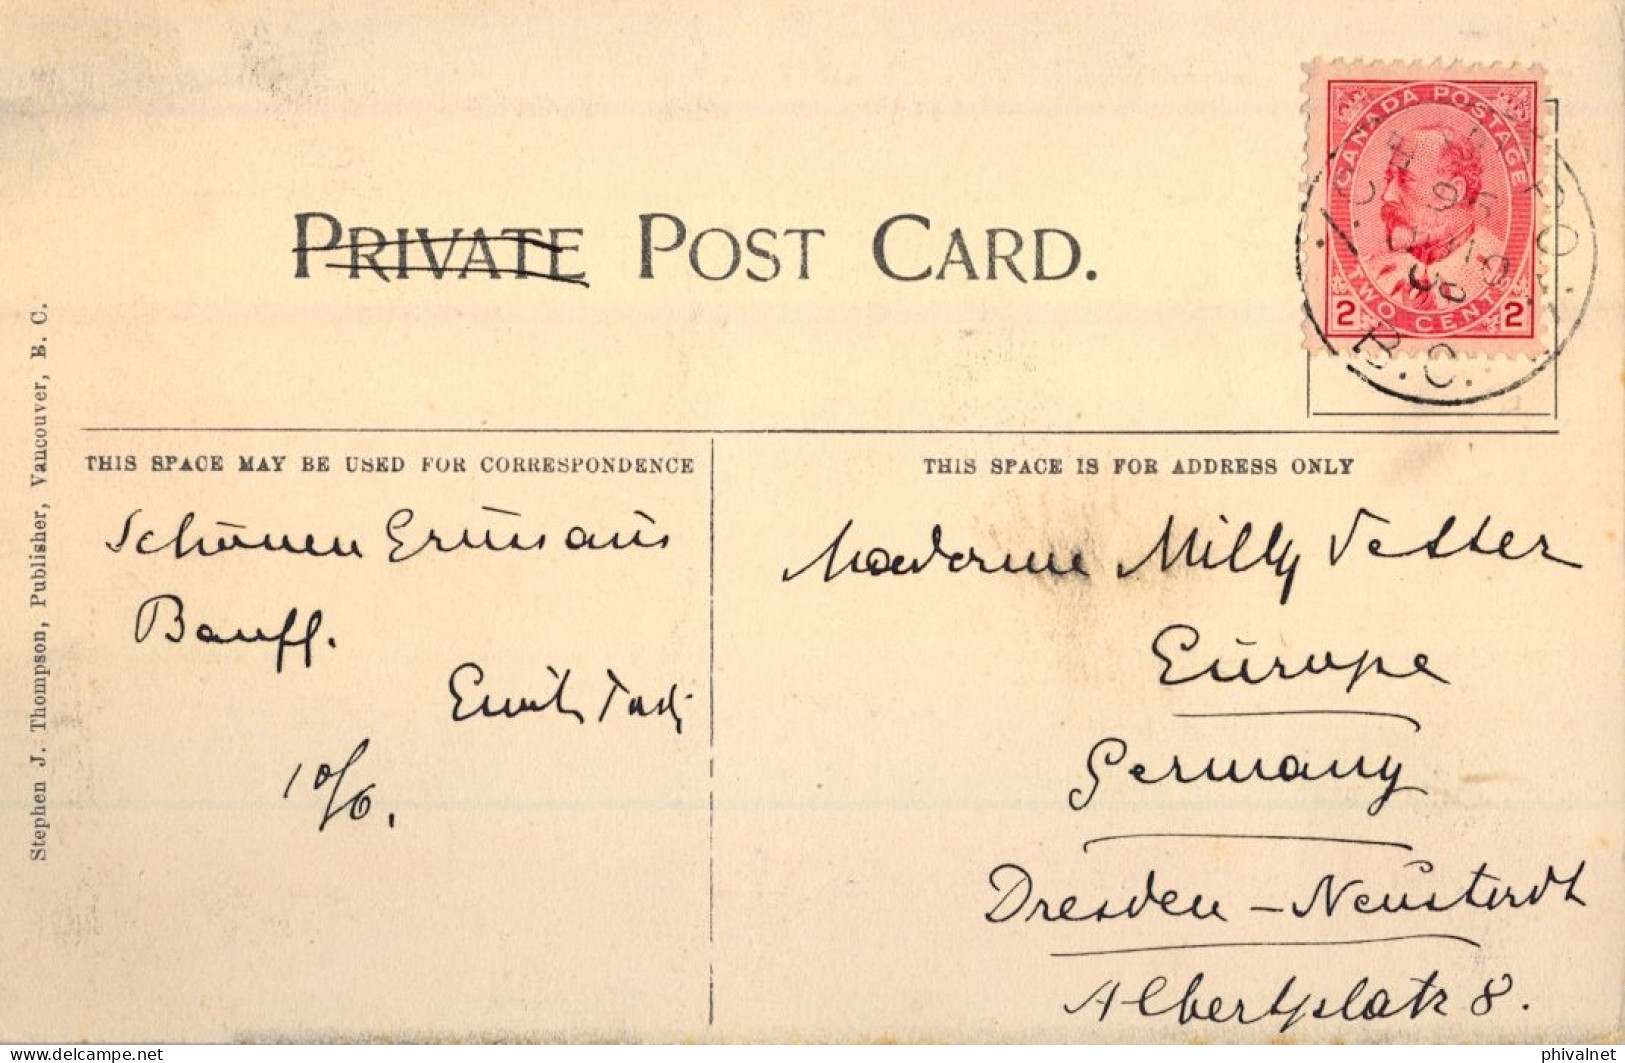 PRIVATE POST CARD.
CANADA POSTAGE
TWO CENTS
2 2
B.C.
Stephen J. Thompson, Publisher, Vancouver, B. C.
THIS SPACE MAY BE USED FOR CORRESPONDENCE
Schönen Gruss aus
Banff.
Emil
10/6.
THIS SPACE IS FOR ADDRESS ONLY
Madame Milly Vetter
Europe
Germany
Dresden - Neustadt
Albertplatz 8.
delcampe.net
phivalnet